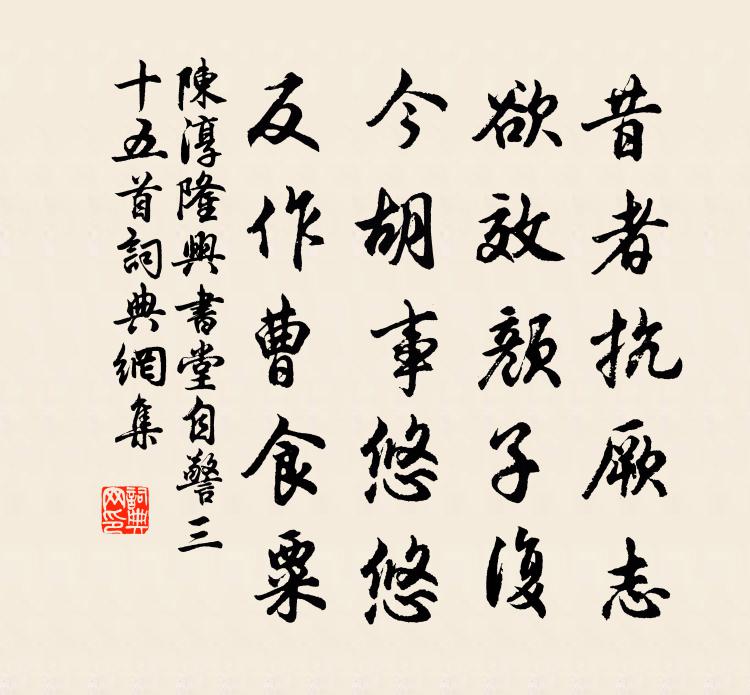 昔者抗厥志
欲效顏子復
今胡事悠悠
反作曹食粟
陳淳隆興書堂自警三
十五首詞典網集
詞典
网印